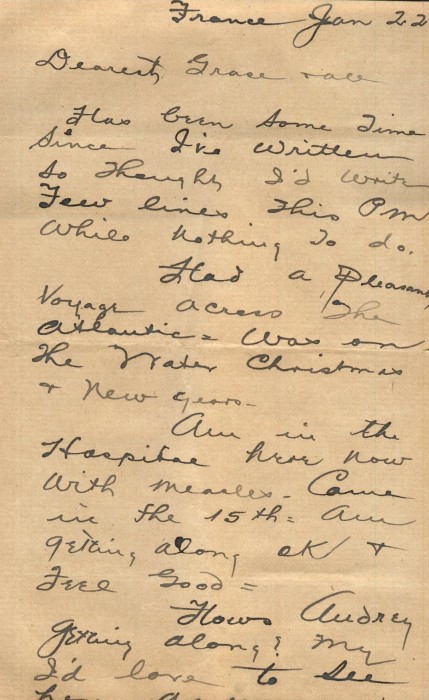 France Jan 22
Dearest Grace & all
Has been some time
Since I've written
So thought I'd write
Few lines this PM
while nothing to do.
Had a pleasant
Voyage across the
Atlantic = was on
the Water Christmas
& New Years -
Am in the
Hospital here now
with measles - Came
in the 15th = Am
getting along OK &
Feel Good =
Hows Audrey
getting along? My
I'd love to see